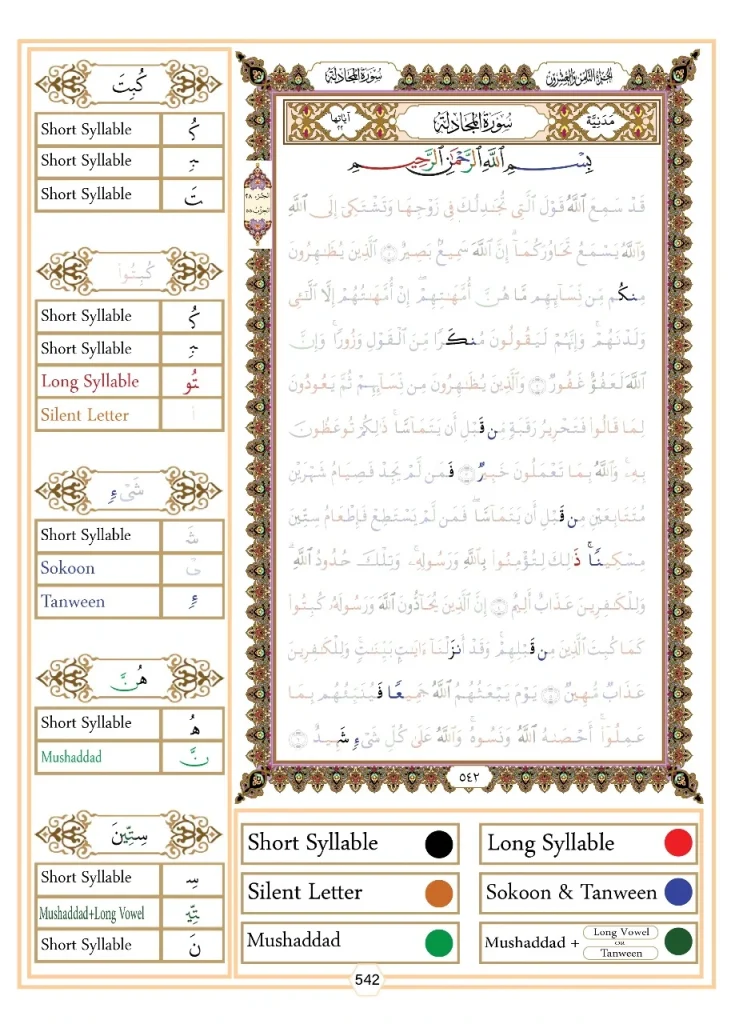 سورة المجادلة
الجزء الثامن والعشرون
كُبِتَ
Short Syllable كُ
Short Syllable بِ
Short Syllable تَ
كُبِتُوا۟
Short Syllable كُ
Short Syllable بِ
Long Syllable تُو
Silent Letter ا
شَىْءٍ
Short Syllable شَ
Sokoon ىْ
Tanween ءٍ
هُنَّ
Short Syllable هُ
Mushaddad نَّ
سِتِّينَ
Short Syllable سِ
Mushaddad+Long Vowel تِّي
Short Syllable نَ
مدنية
سورة المجادلة
آياتها ٢٢
بِسْمِ ٱللَّهِ ٱلرَّحْمَٰنِ ٱلرَّحِيمِ
الجزء ٢٨
قَدْ سَمِعَ ٱللَّهُ قَوْلَ ٱلَّتِى تُجَٰدِلُكَ فِى زَوْجِهَا وَتَشْتَكِىٓ إِلَى ٱللَّهِ
وَٱللَّهُ يَسْمَعُ تَحَاوُرَكُمَآ إِنَّ ٱللَّهَ سَمِيعٌۢ بَصِيرٌ ١ ٱلَّذِينَ يُظَٰهِرُونَ
مِنكُم مِّن نِّسَآئِهِم مَّا هُنَّ أُمَّهَٰتِهِمْ ۖ إِنْ أُمَّهَٰتُهُمْ إِلَّا ٱلَّٰٓـِٔى
وَلَدْنَهُمْ ۚ وَإِنَّهُمْ لَيَقُولُونَ مُنكَرًا مِّنَ ٱلْقَوْلِ وَزُورًا ۚ وَإِنَّ
ٱللَّهَ لَعَفُوٌّ غَفُورٌ ٢ وَٱلَّذِينَ يُظَٰهِرُونَ مِن نِّسَآئِهِمْ ثُمَّ يَعُودُونَ
لِمَا قَالُوا۟ فَتَحْرِيرُ رَقَبَةٍ مِّن قَبْلِ أَن يَتَمَآسَّا ۚ ذَٰلِكُمْ تُوعَظُونَ
بِهِۦ ۚ وَٱللَّهُ بِمَا تَعْمَلُونَ خَبِيرٌ ٣ فَمَن لَّمْ يَجِدْ فَصِيَامُ شَهْرَيْنِ
مُتَتَابِعَيْنِ مِن قَبْلِ أَن يَتَمَآسَّا ۖ فَمَن لَّمْ يَسْتَطِعْ فَإِطْعَامُ سِتِّينَ
مِسْكِينًا ۚ ذَٰلِكَ لِتُؤْمِنُوا۟ بِٱللَّهِ وَرَسُولِهِۦ ۚ وَتِلْكَ حُدُودُ ٱللَّهِ ۗ
وَلِلْكَٰفِرِينَ عَذَابٌ أَلِيمٌ ٤ إِنَّ ٱلَّذِينَ يُحَآدُّونَ ٱللَّهَ وَرَسُولَهُۥ كُبِتُوا۟
كَمَا كُبِتَ ٱلَّذِينَ مِن قَبْلِهِمْ ۚ وَقَدْ أَنزَلْنَآ ءَايَٰتٍۭ بَيِّنَٰتٍ ۚ وَلِلْكَٰفِرِينَ
عَذَابٌ مُّهِينٌ ٥ يَوْمَ يَبْعَثُهُمُ ٱللَّهُ جَمِيعًا فَيُنَبِّئُهُم بِمَا
عَمِلُوٓا۟ ۚ أَحْصَىٰهُ ٱللَّهُ وَنَسُوهُ ۚ وَٱللَّهُ عَلَىٰ كُلِّ شَىْءٍ شَهِيدٌ ٦
٥٤٢
Short Syllable
Long Syllable
Silent Letter
Sokoon & Tanween
Mushaddad
Mushaddad + Long Vowel OR Tanween
542